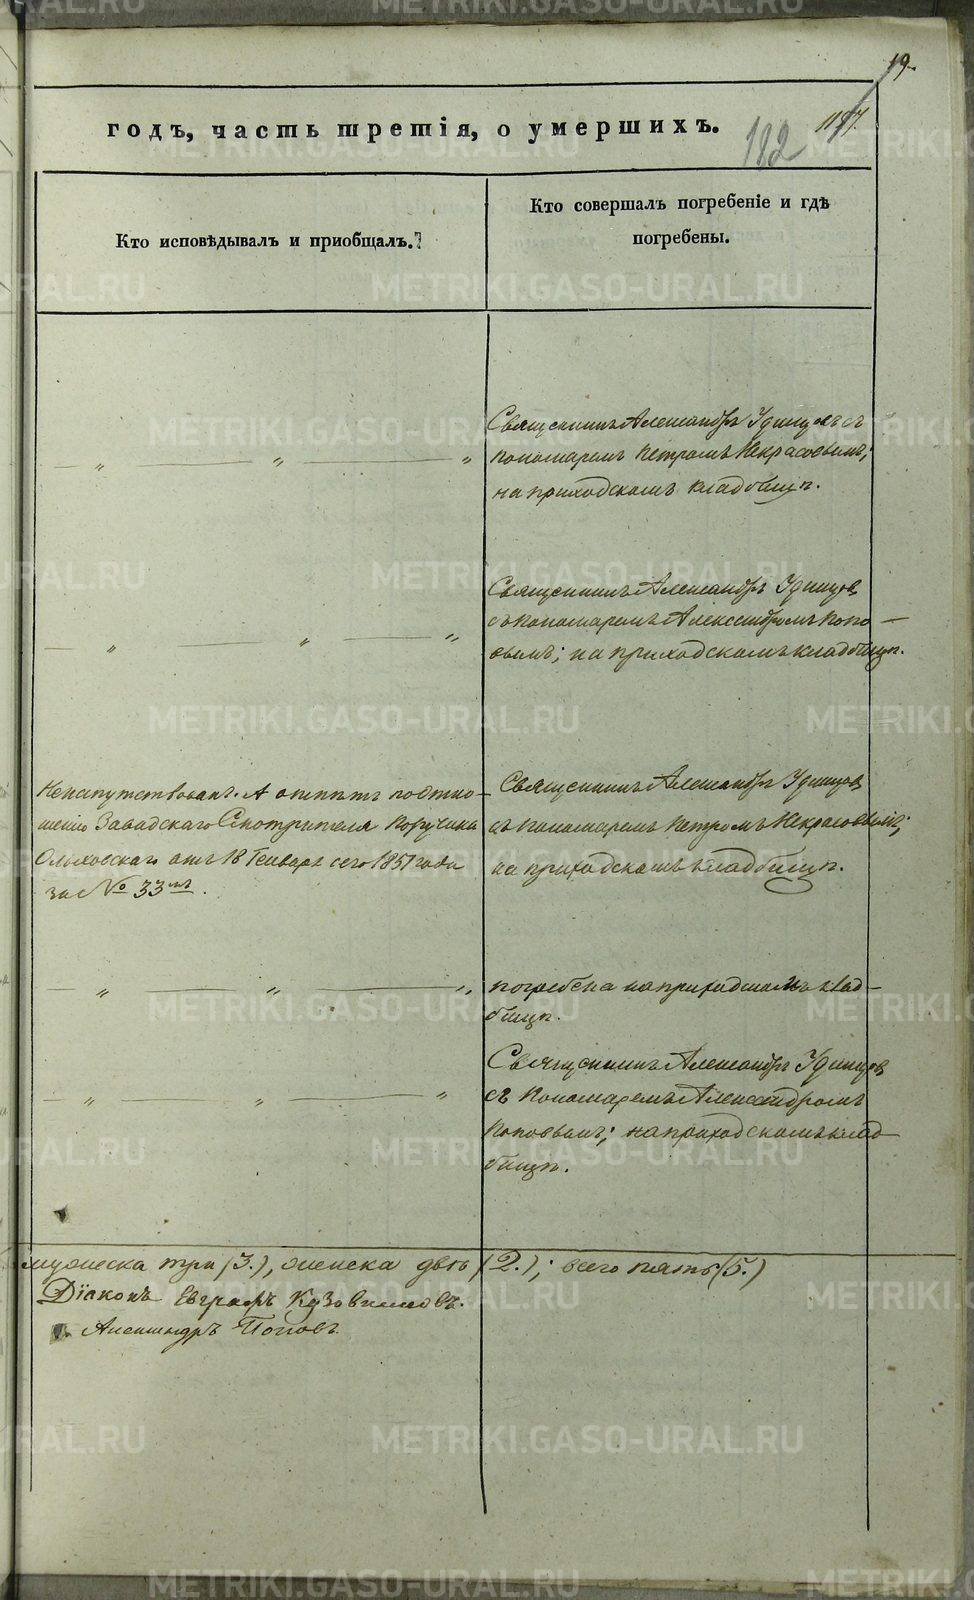 19.
годъ, часть третія, о умершихъ.
182
Кто исповѣдывалъ и пріобщалъ.
Кто совершалъ погребеніе и гдѣ
погребены.
Священникъ Александръ Удинцовъ съ
пономаремъ Петромъ Некрасовымъ;
на приходскомъ кладбищѣ.
Священникъ Александръ Удинцовъ
съ пономаремъ Александромъ Попо-
вымъ; на приходскомъ кладбищѣ.
Ненапутствованъ. А отпѣтъ по отно-
шенію Заводскаго Смотрителя Поручика
Ольховскаго отъ 18 Генваря сего 1857 года
за № 33мъ.
Священникъ Александръ Удинцовъ
съ пономаремъ Петромъ Некрасовымъ;
на приходскомъ кладбищѣ.
погребена на приходскомъ клад-
бищѣ.
Священникъ Александръ Удинцовъ
съ пономаремъ Александромъ
Поповымъ; на приходскомъ клад-
бищѣ.
мужеска три (3.), женска двѣ (2.); всего пять (5.)
Діаконъ Евграфъ Кузовниковъ.
Александръ Поповъ.
METRIKI.GASO-URAL.RU